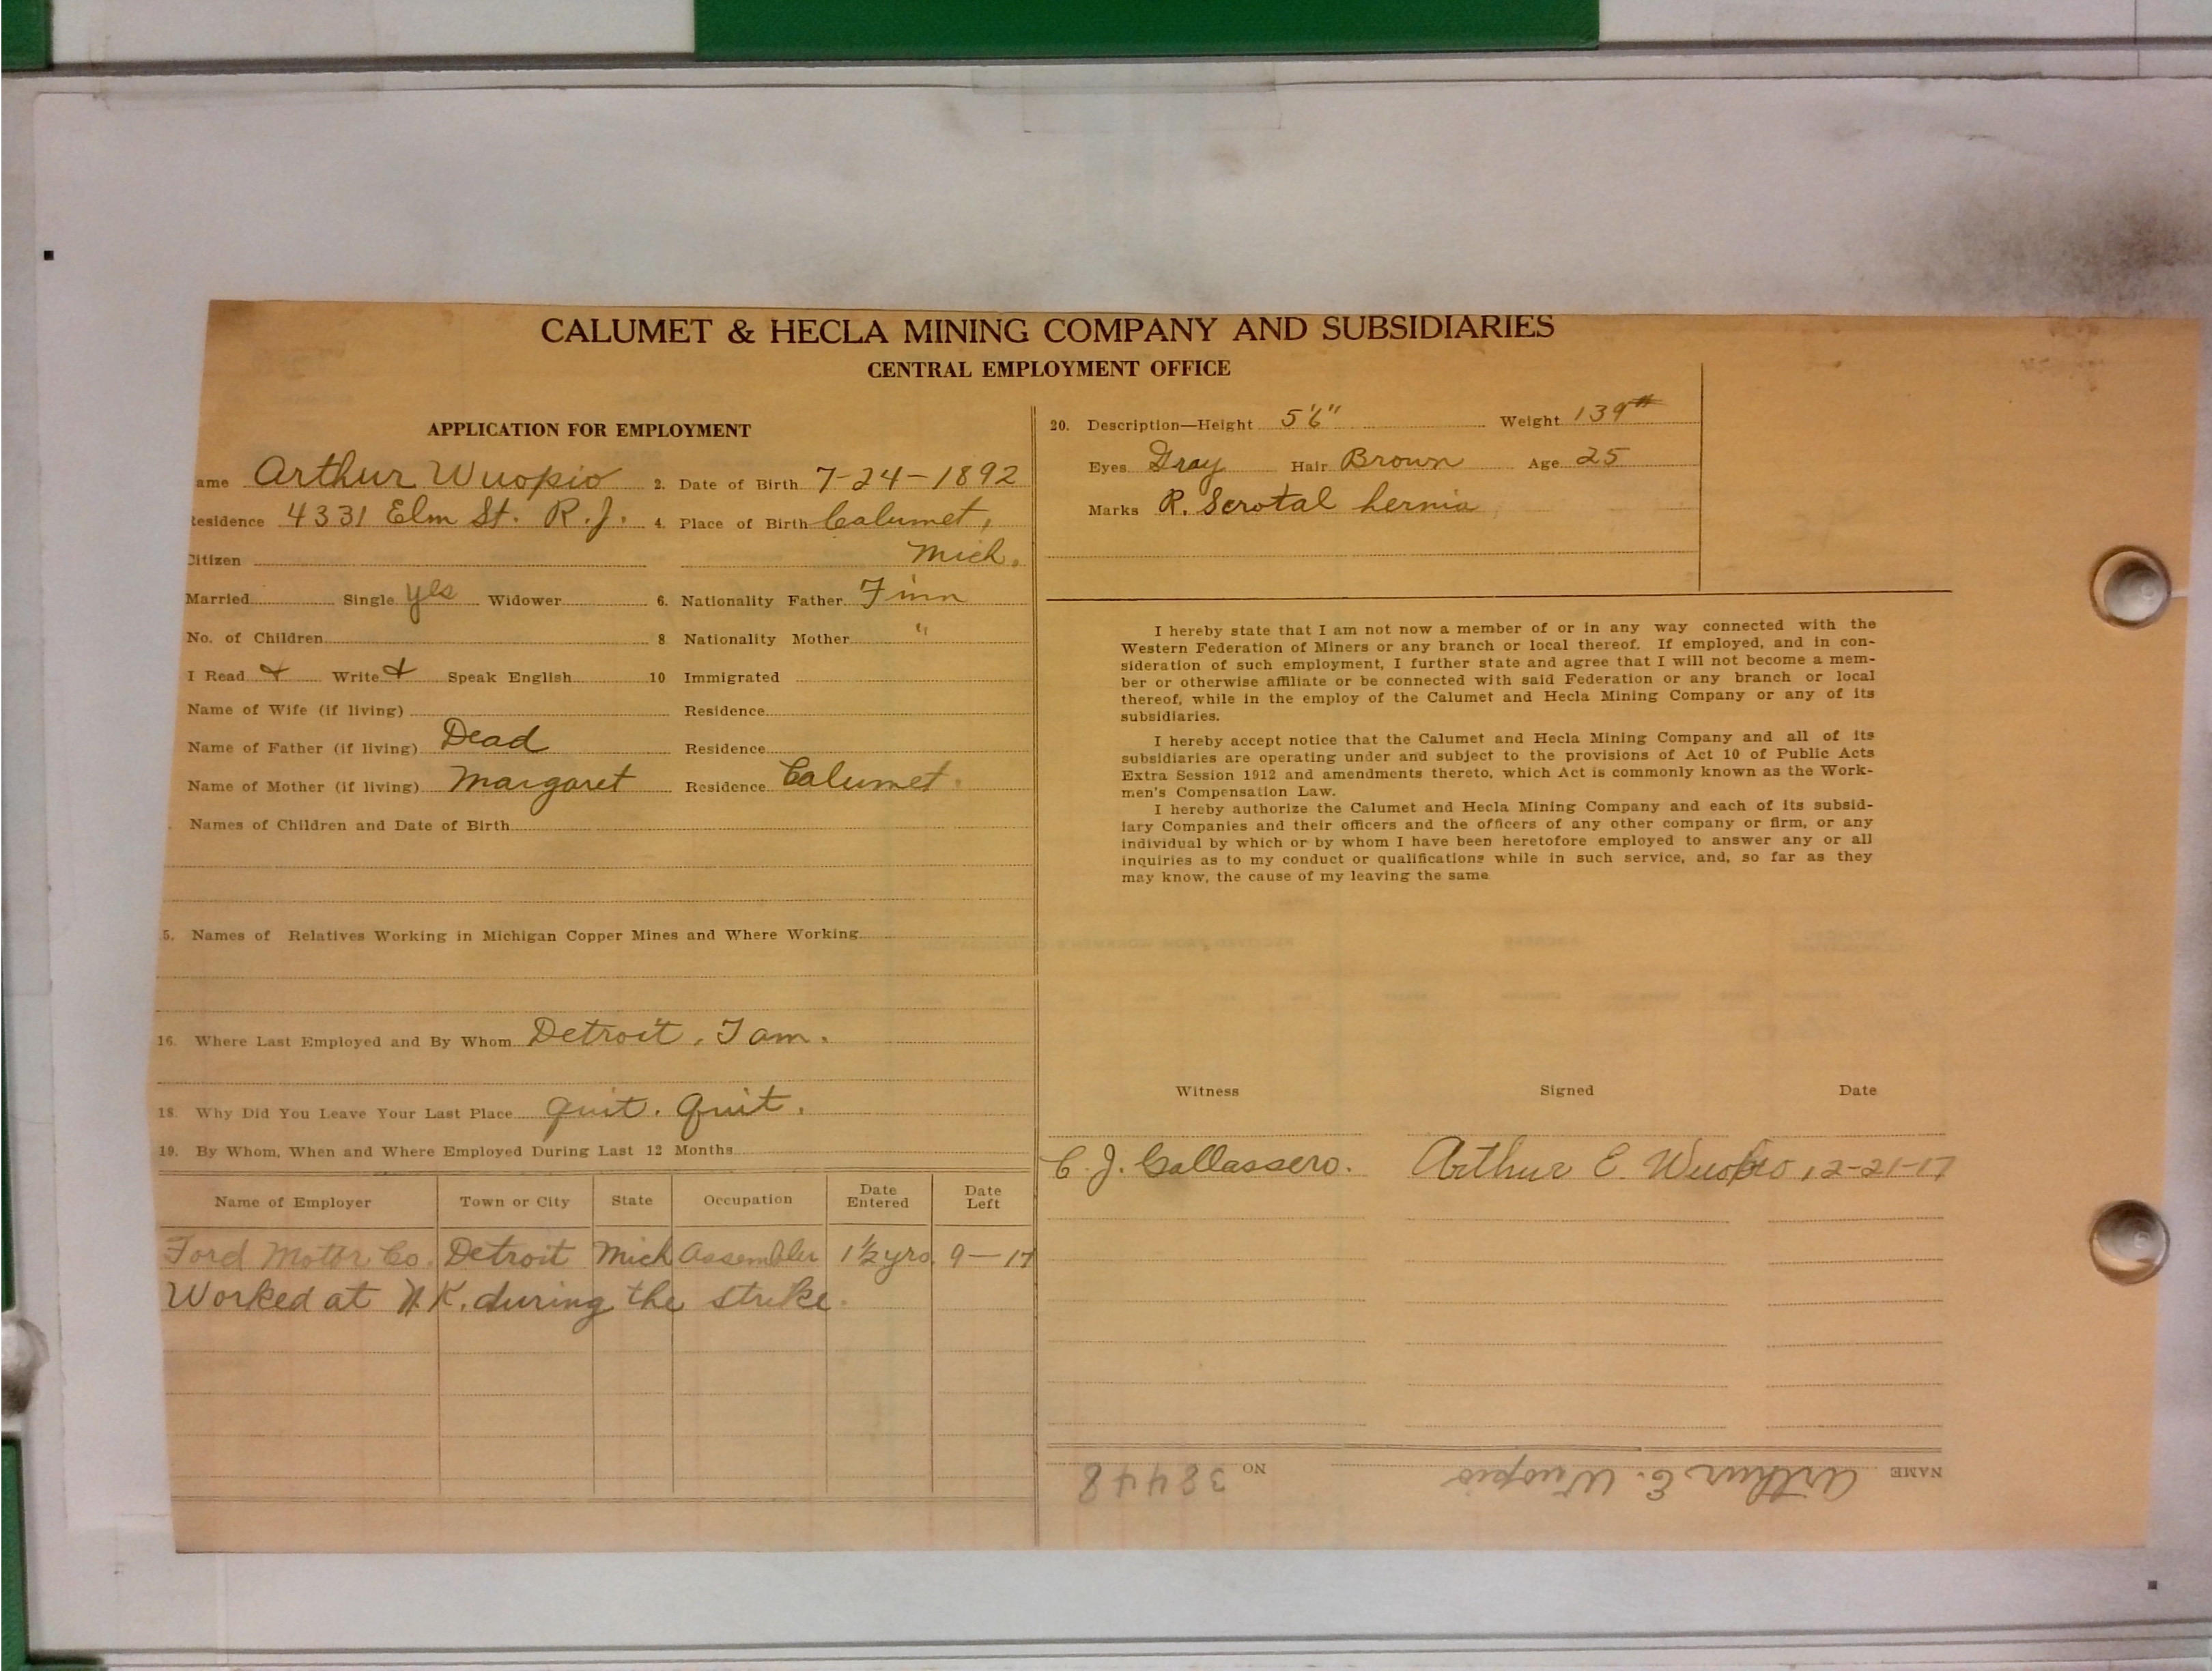 CALUMET & HECLA MINING COMPANY AND SUBSIDIARIES
CENTRAL EMPLOYMENT OFFICE
APPLICATION FOR EMPLOYMENT
ame Arthur Wuopio 2. Date of Birth 7-24-1892
Residence 4331 Elm St. R.J. 4. Place of Birth Calumet,
Citizen Mich.
Married Single yes Widower 6. Nationality Father Finn
No. of Children 8 Nationality Mother "
I Read + Write + Speak English 10 Immigrated
Name of Wife (if living) Residence
Name of Father (if living) Dead Residence
Name of Mother (if living) Margaret Residence Calumet.
Names of Children and Date of Birth
5. Names of Relatives Working in Michigan Copper Mines and Where Working
16. Where Last Employed and By Whom Detroit, Tam.
18. Why Did You Leave Your Last Place quit. Quit.
19. By Whom, When and Where Employed During Last 12 Months
Name of Employer Town or City State Occupation Date Entered Date Left
Ford Motor Co. Detroit Mich Assembler 1½ yrs. 9-17
Worked at N.K. during the strike.
20. Description—Height 5'6" Weight 139#
Eyes Gray Hair Brown Age 25
Marks R. Scrotal hernia
I hereby state that I am not now a member of or in any way connected with the
Western Federation of Miners or any branch or local thereof. If employed, and in con-
sideration of such employment, I further state and agree that I will not become a mem-
ber or otherwise affiliate or be connected with said Federation or any branch or local
thereof, while in the employ of the Calumet and Hecla Mining Company or any of its
subsidiaries.
I hereby accept notice that the Calumet and Hecla Mining Company and all of its
subsidiaries are operating under and subject to the provisions of Act 10 of Public Acts
Extra Session 1912 and amendments thereto, which Act is commonly known as the Work-
men's Compensation Law.
I hereby authorize the Calumet and Hecla Mining Company and each of its subsid-
iary Companies and their officers and the officers of any other company or firm, or any
individual by which or by whom I have been heretofore employed to answer any or all
inquiries as to my conduct or qualifications while in such service, and, so far as they
may know, the cause of my leaving the same
Witness Signed Date
C. J. Collassero. Arthur E. Wuopio 12-21-17
NAME Arthur E. Wuopio NO 38448